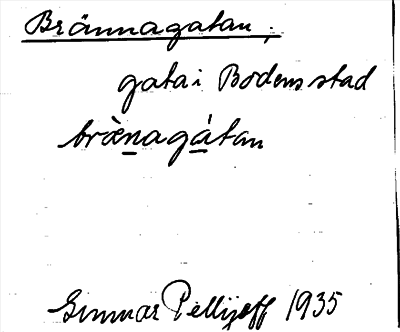 Brännagatan;
gata i Bodens stad
bràn̲agá̲tan
Gunnar Pellijeff 1935